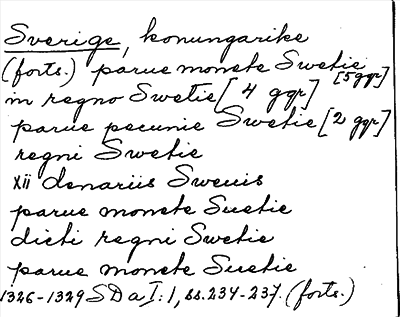 Sverige, konungarike
(forts.) parue monete Swetie [5 ggr]
in regno Swetie [4 ggr]
parue pecunie Swetie [2 ggr]
regni Swetie
XII denariis Sweuis
parue monete Suetie
dicti regni Swetie
parue monete Suetie
1326-1329 SD a I:1, ss. 234-237. (forts.)